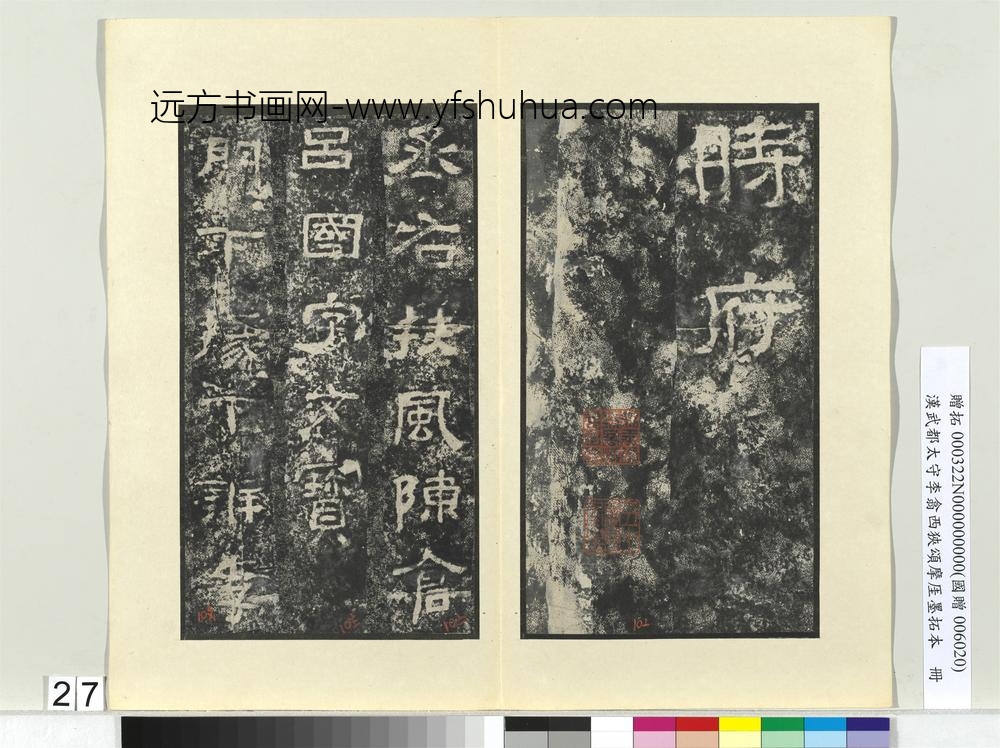 远方书画网-www.yfshuhua.com
時府
丞右扶風陳倉
呂國字文寶
門下掾下辨李
贈拓 000322N000000000(國贈 006020)
漢武都太守李翕西狹頌摩厓墨拓本 冊
102
103
27